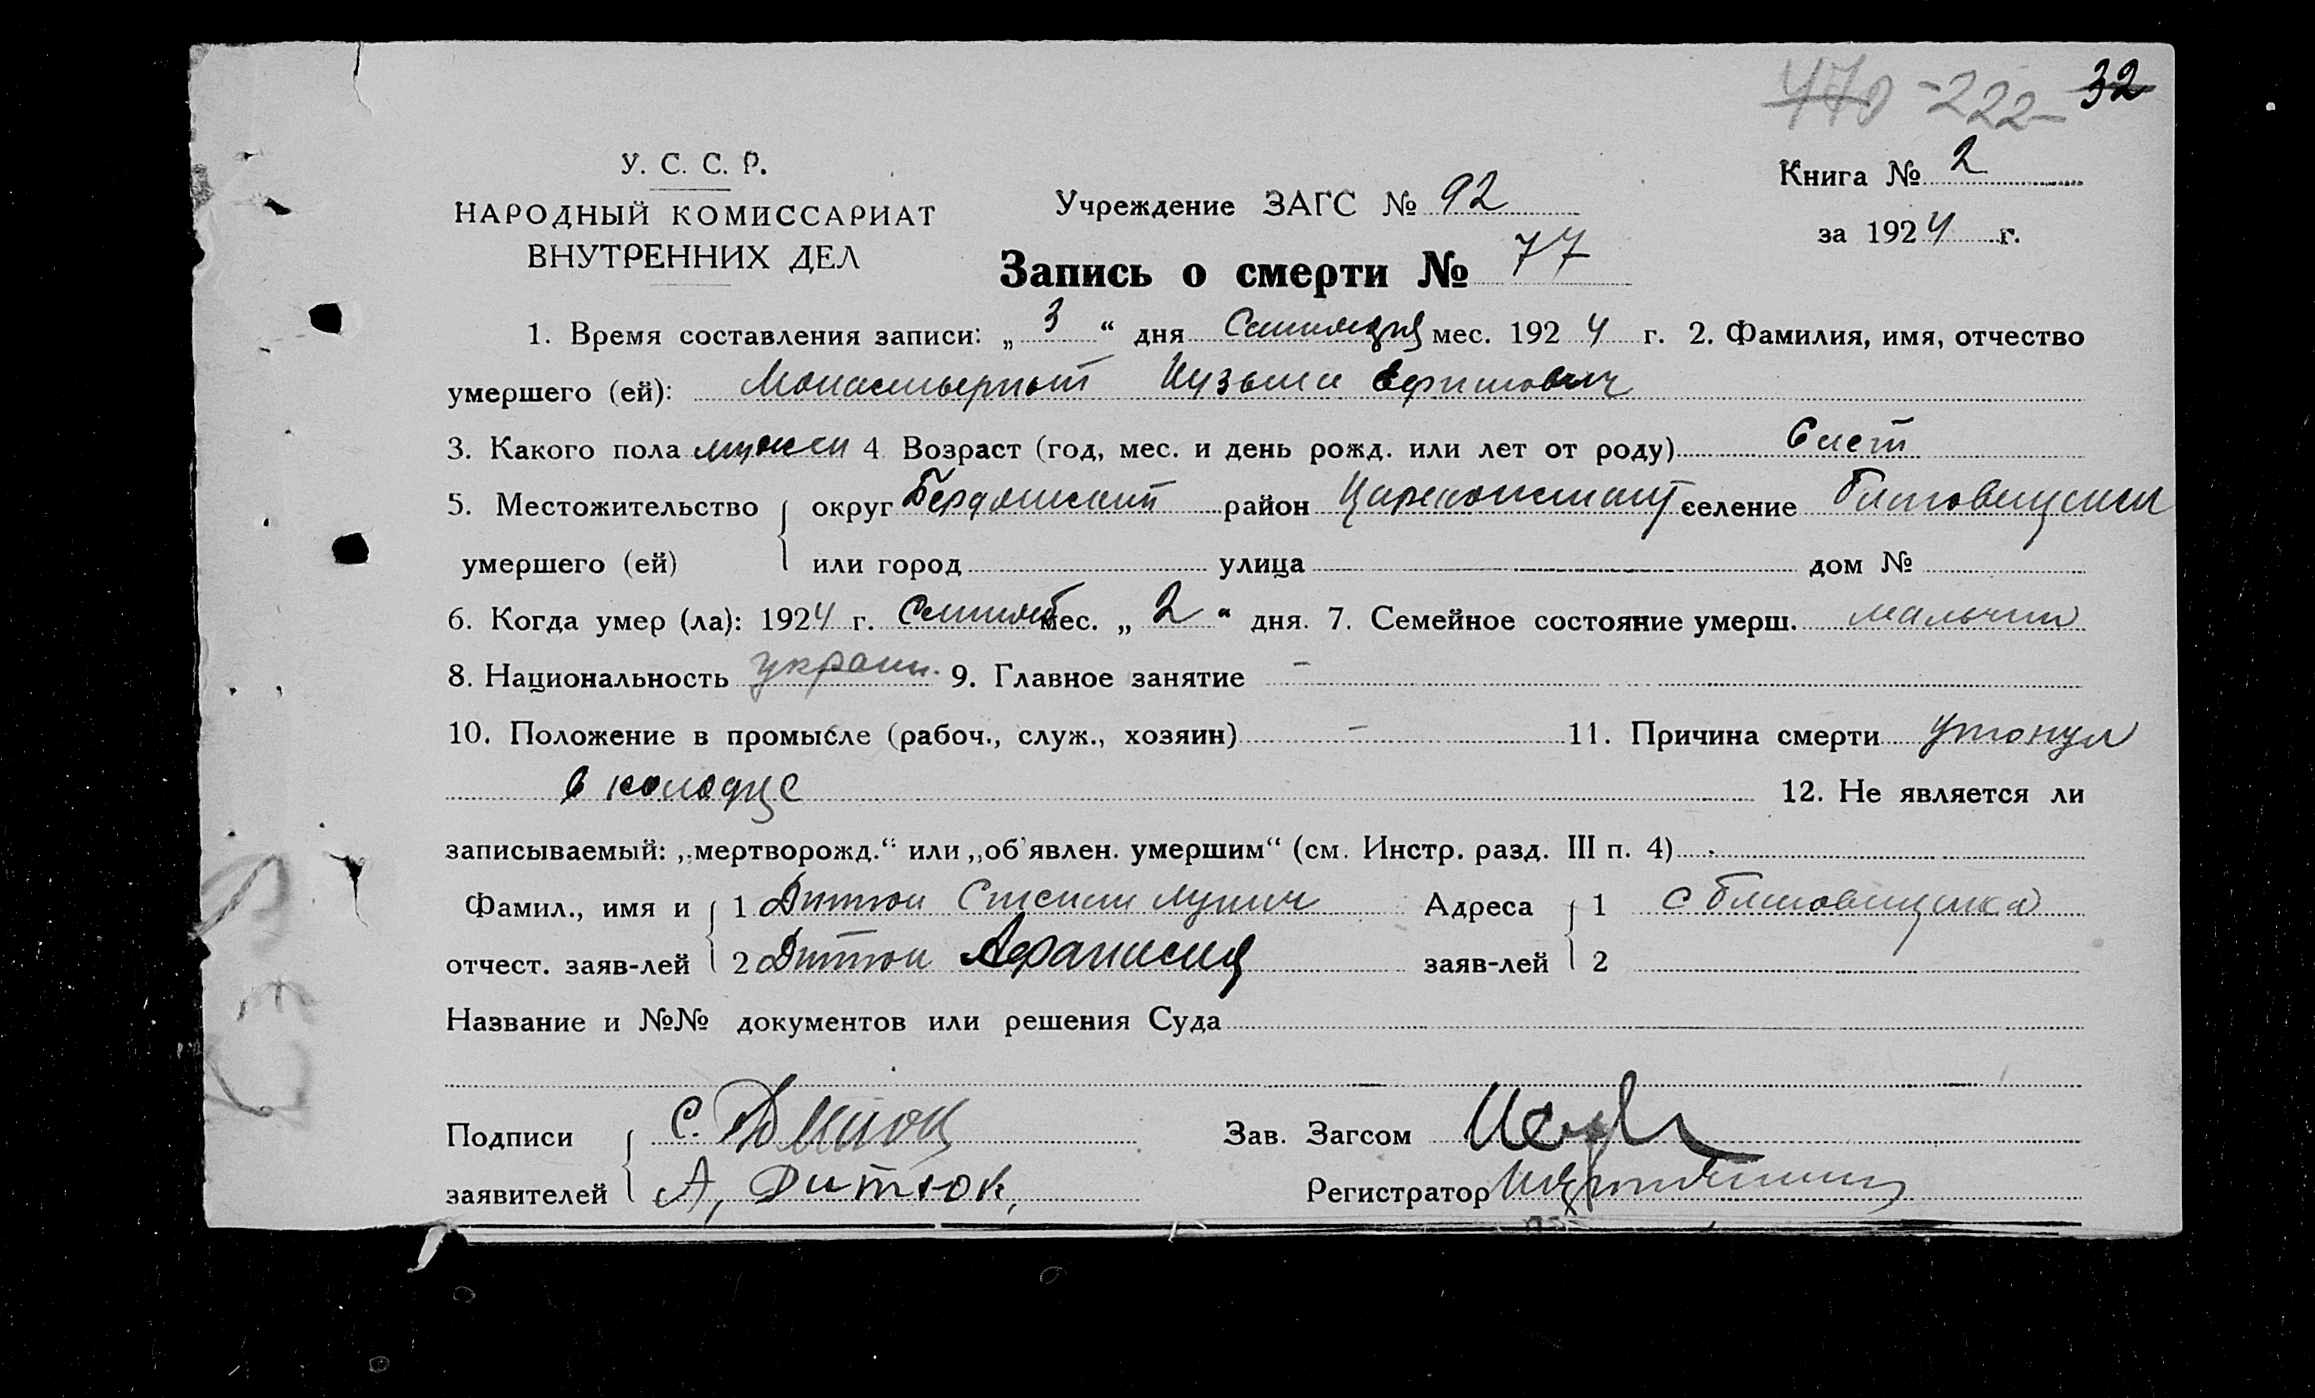 470 -222- 32
У. С. С. Р.
НАРОДНЫЙ КОМИССАРИАТ
ВНУТРЕННИХ ДЕЛ
Учреждение ЗАГС № 92
Книга № 2
за 1924 г.
Запись о смерти № 77
1. Время составления записи: „3“ дня Сентября мес. 1924 г. 2. Фамилия, имя, отчество
умершего (ей): Монастырный Кузьма Ефимович
3. Какого пола мужск 4 Возраст (год, мес. и день рожд. или лет от роду) 6 лет
5. Местожительство округ Бердянский район Цареконстант селение
умершего (ей) или город улица дом №
6. Когда умер (ла): 1924 г. Сентяб мес. „2“ дня. 7. Семейное состояние умерш. мальчик
8. Национальность украин. 9. Главное занятие –
10. Положение в промысле (рабоч., служ., хозяин) – 11. Причина смерти утонул
в колодце 12. Не является ли
записываемый: „мертворожд.“ или „об'явлен. умершим“ (см. Инстр. разд. III п. 4)
Фамил., имя и 1 Дитюк Степан Адреса 1 с
отчест. заяв-лей 2 Дитюк Афанасий заяв-лей 2
Название и №№ документов или решения Суда
Подписи С. Дитюк Зав. Загсом
заявителей А, Дитюк, Регистратор